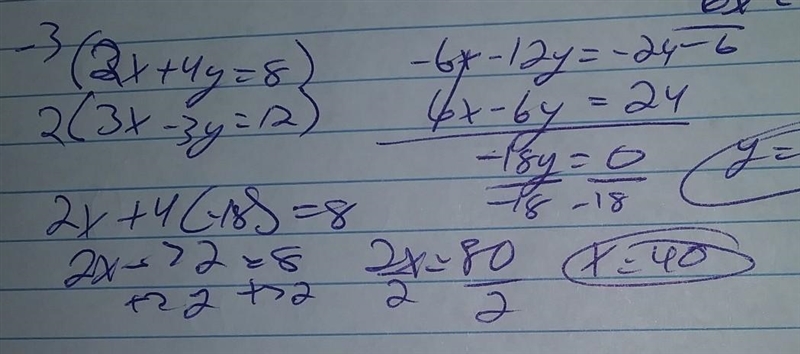 -3 (2x+4y=8)
2(3x-3y=12)
-6x-12y=-24
6x-6y=24
-18y=0
-18 -18
y=
2x+4(-18)=8
2x-72=8
+72 +72
2x=80
2 2
x=40